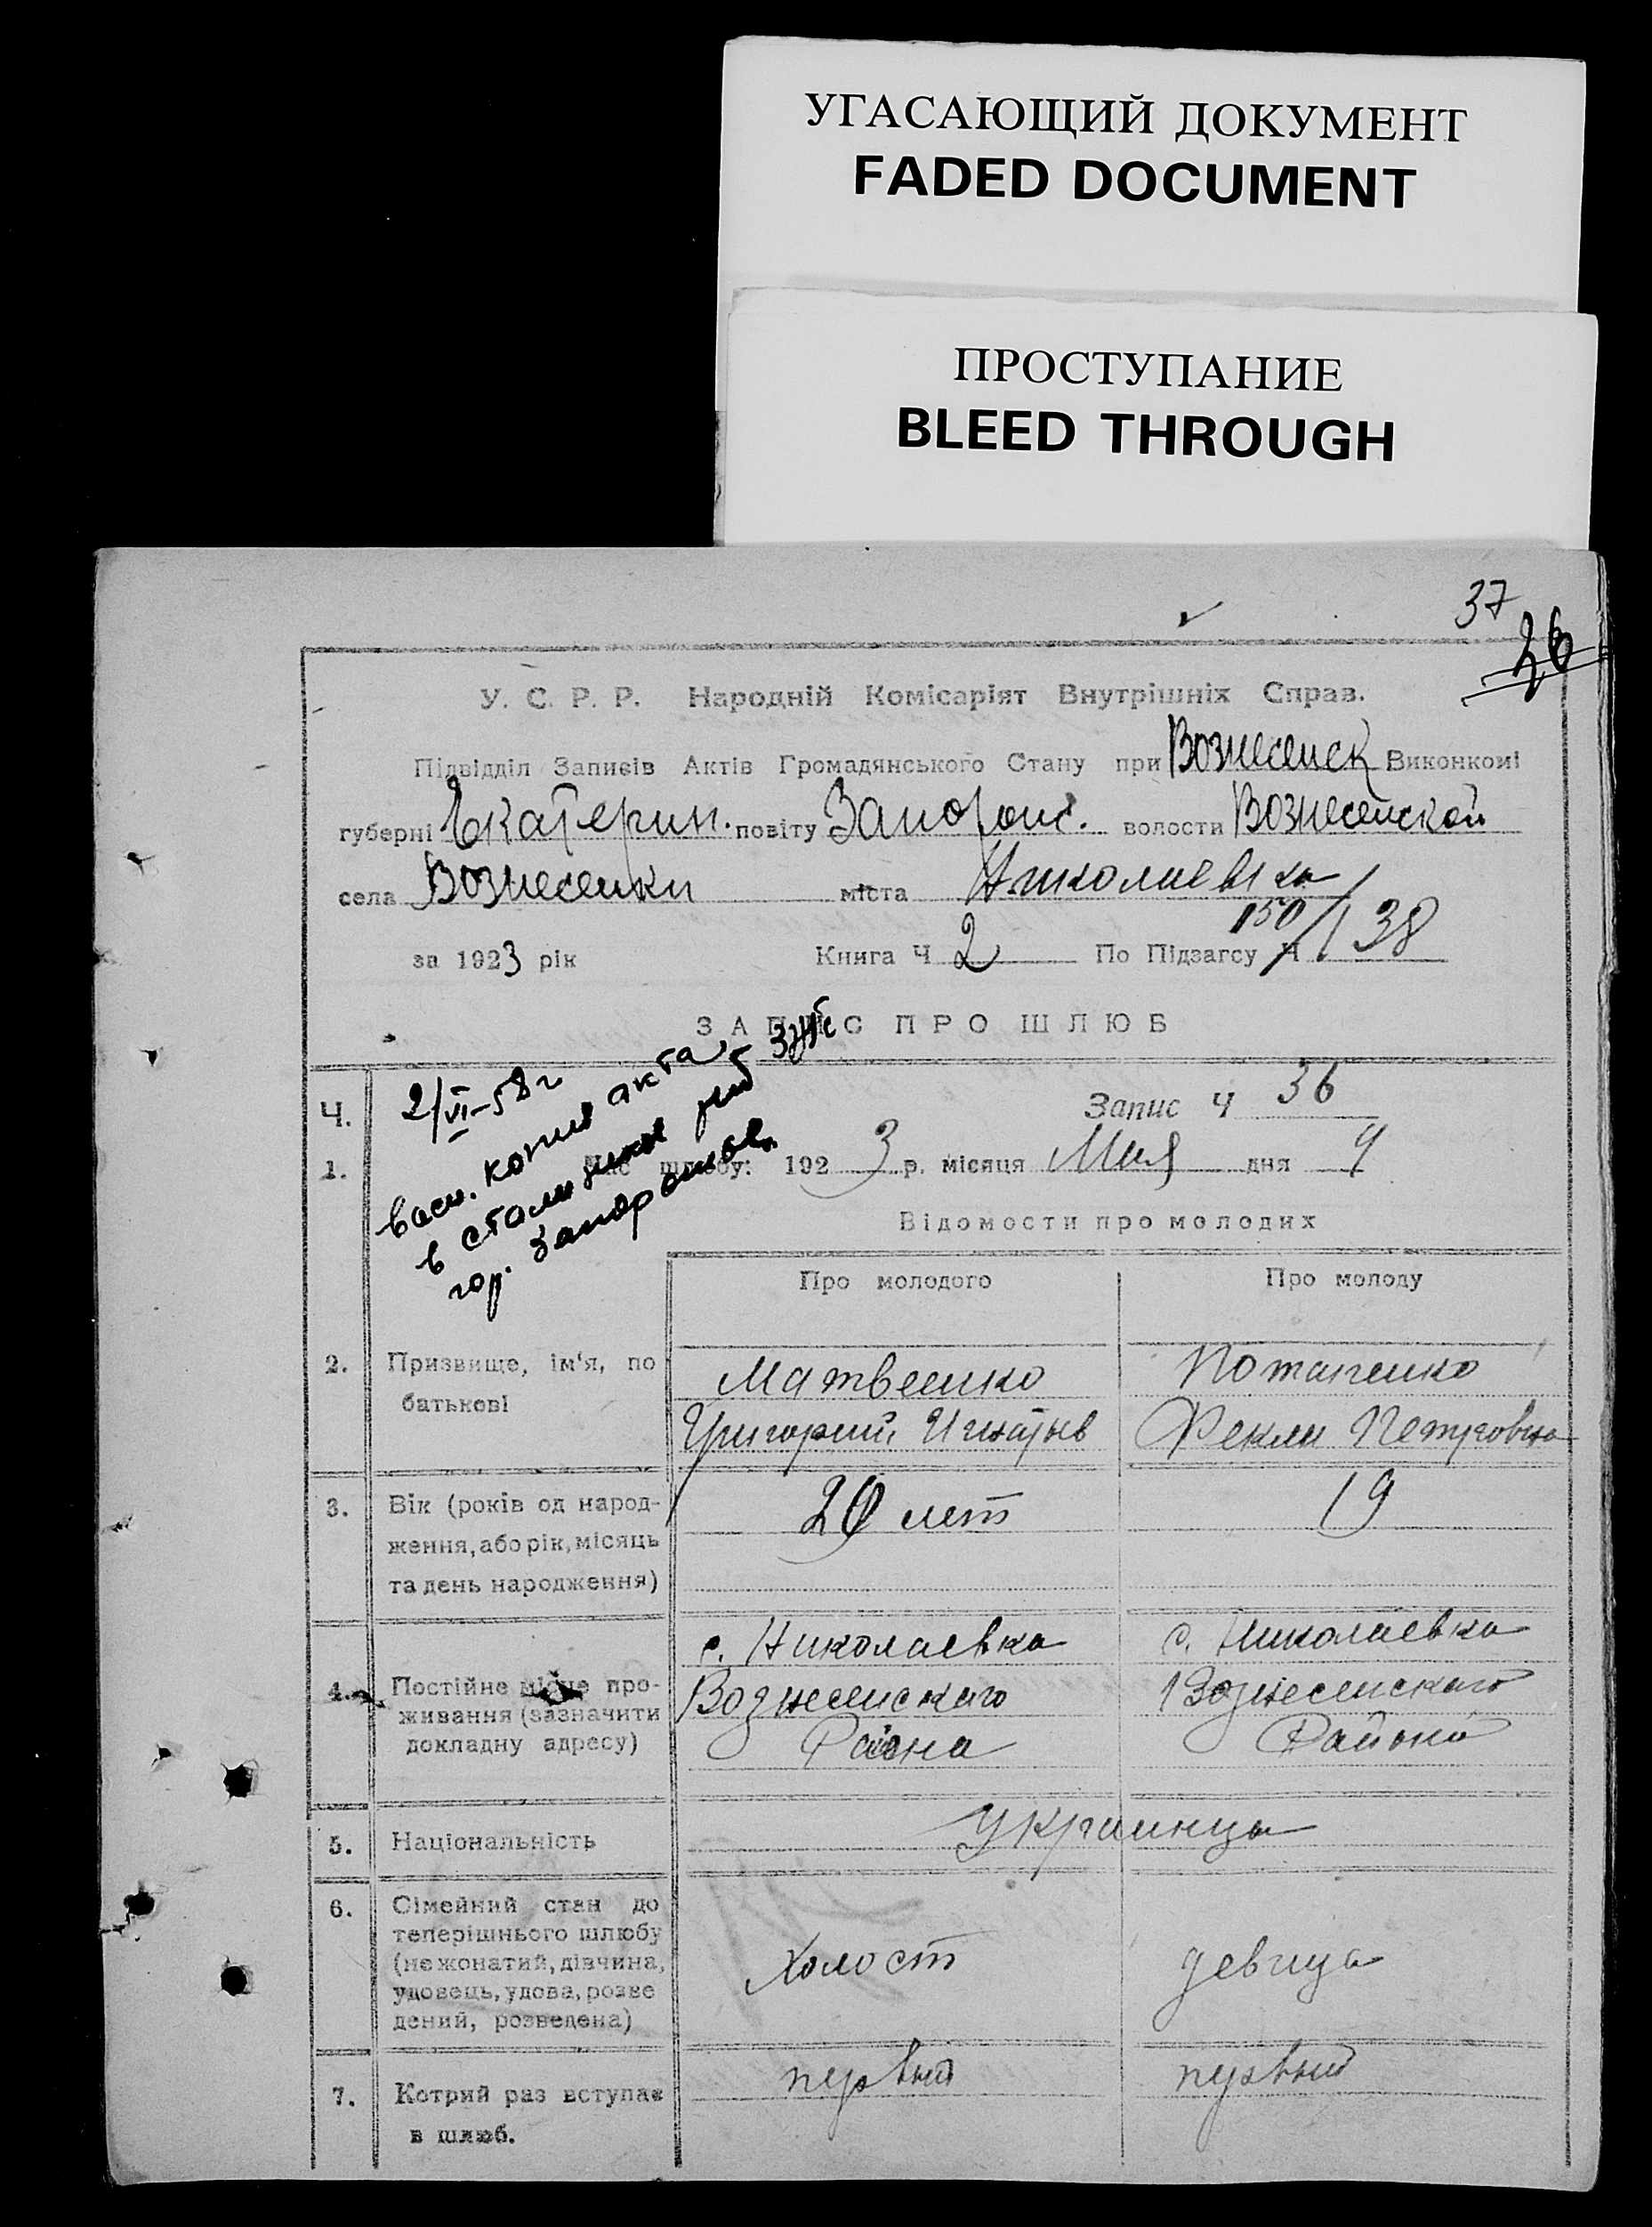 УГАСАЮЩИЙ ДОКУМЕНТ
FADED DOCUMENT
ПРОСТУПАНИЕ
BLEED THROUGH
37
26
У. С. Р. Р. Народній Комісаріят Внутрішніх Справ.
Підвідділ Записів Актів Громадянського Стану при Вознесенск Виконкомі
губерні Екатерин. повіту Запорож. волости Вознесенской
села Вознесенки міста Николаевка
за 1923 рік Книга Ч 2 По Підзагсу Ч 150/138
ЗАПИС ПРО ШЛЮБ
2/VI-58 г
копия акта
в сталинское
гор. Запорожье
Ч. Запис Ч 36
1. Час шлюбу: 1923 р. місяця Мая дня 4
Відомости про молодих
Про молодого Про молоду
2. Призвище, ім'я, по батькові
Матвеенко
Григорий Игнатьев
Потапенко
Фекла Петровна
3. Вік (років од народ-
ження, або рік, місяць
та день народження)
20 лет
19
4. Постійне місце про-
живання (зазначити
докладну адресу)
с. Николаевка
Вознесенскаго
Раіона
с. Николаевка
Вознесенскаго
Района
5. Національність
украинцы
6. Сімейний стан до
теперішнього шлюбу
(не жонатий, дівчина,
удовець, удова, розве
дений, розведена)
холост
девица
7. Котрий раз вступає
в шлюб.
первый
первый